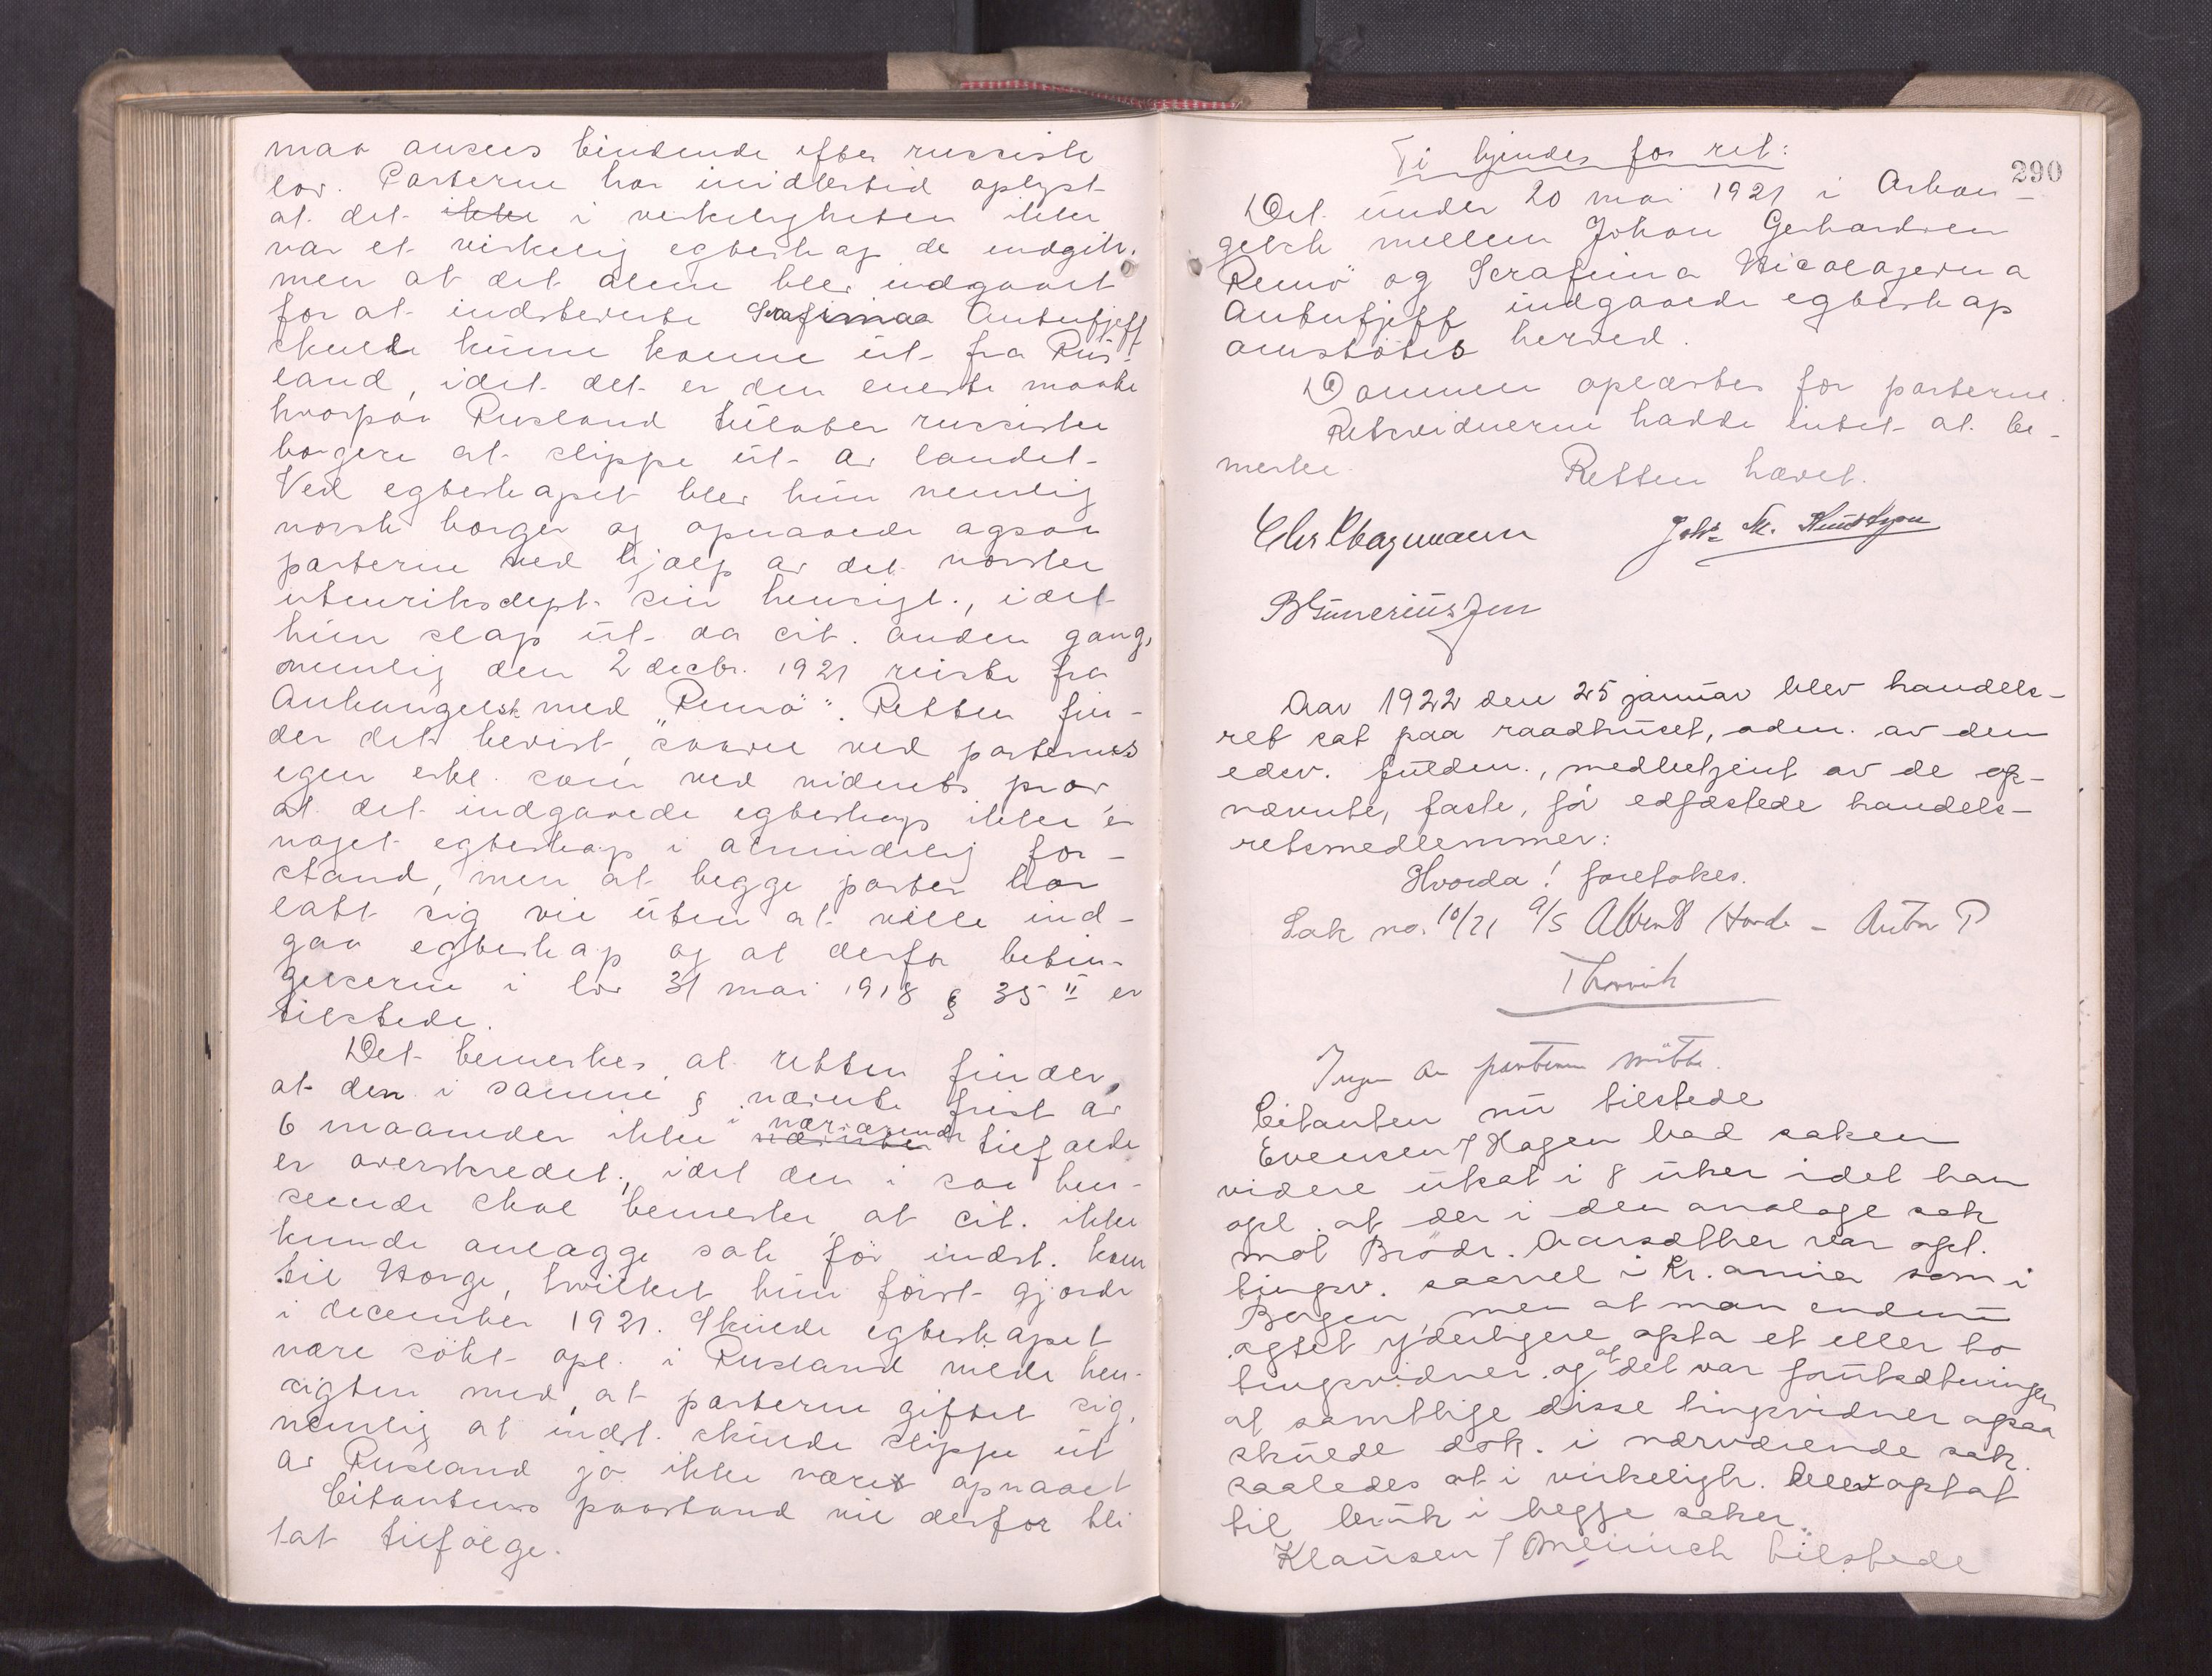 maa ansees bindende efter russiske
lov. Parterne har imidlertid oplyst
at det ikke i virkeligheten ikke
var et virkelig egteskap de indgik,
men at det alene blev indgaaet
for at indstevnte Serafimaa Antufjeff
skulde kunne komme ut fra Rus-
land, idet det er den eneste maate
hvorpaa Rusland tillater russiske
borgere at slippe ut av landet.
Ved egteskapet blev hun nemlig
norsk borger og opnaaede ogsaa
parterne ved hjælp av det norske
utenriksdept. sin hensigt, idet
hun slap ut da cit. anden gang,
nemlig den 2 decbr. 1921 reiste fra
Arkangelsk med "Remö". Retten fin-
der det bevist, saavel ved parternes
egen erkl. som ved vidnets prov,
at det indgaaede egteskap ikke er
noget egteskap i almindelig for-
stand, men at begge parter har
latt sig vie uten at ville ind-
gaa egteskap og at derfor betin-
gelserne i lov 31 mai 1918 § 35 II er
tilstede.
Det bemerkes at retten finder,
at den i samme § nævnte frist av
6 maaneder ikke i nærværende nævnte tilfælde
er overskredet, idet den i saa hen-
seende skal bemerke at cit. ikke
kunde anlægge sak før indst. kom
til Norge, hvilket hun först gjorde
i december 1921. Skulde egteskapet
være sökt opl. i Rusland vilde hen-
sigten med, at parterne giftet sig,
nemlig at indst. skulde slippe ut
av Rusland jo ikke været opnaaet
Citantens paastand vil derfor bli
tat tilfölge.
290
Ti kjendes for ret:
Det under 20 mai 1921 i Arkan-
gelsk mellem Johan Gerhardsen
Remö og Serafima Nicolajevna
Antufjeff indgaaede egteskap
omstötes herved.
Dommen oplæstes for parterne.
Retsvidnerne hadde intet at be-
merke. Retten hævet.
Aar 1922 den 25 januar blev handels-
ret sat paa raadhuset, adm. av den
edsv. fuldm., medbetjent av de op-
nævnte, faste, för edfæstede handels-
retsmedlemmer:
Hvorda! foretokes.
Sak no. 10/21 A/S Albert Horde - Anton P
Thorvik
Ingen av parterne mötte.
Citanten nu tilstede
Evensen / Hagen bad saken
videre utsat i 8 uker idet han
opl. at der i den analoge sak
mot Brödr. Aarsæther var opt.
tingsv. saavel i Kr.ania som i
Bergen, men at man endnu
agtet yderligere opta et eller to
tingsvidner og at det var forutsætningen
at samtlige disse tingsvidner ogsaa
skulde dok. i nærværende sak.
saaledes at i virkeligh. blev optat
til bruk i begge saker.
Klausen / Meinich tilstede